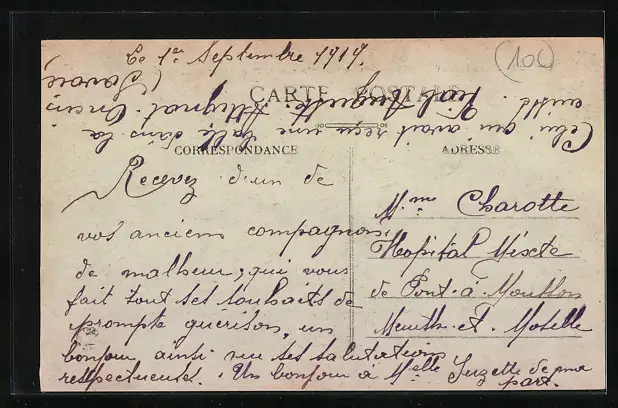 Le 1er Septembre 1917.
(100
CARTE POSTALE
CORRESPONDANCE
ADRESSE
Recevez d'un de
vos anciens compagnons
de malheur, qui vous
fait tout ses souhaits de
prompte guerison, un
bonjour ainsi que ses salutations
respectueuses. Un bonjour à Melle Suzette de ma
part.
Mme Charotte
Hopital Mixte
de Pont-à-Mousson
Meurthe-et-Moselle
Celui qui avait reçu une balle dans la
Vial Auguste
(Savoie)